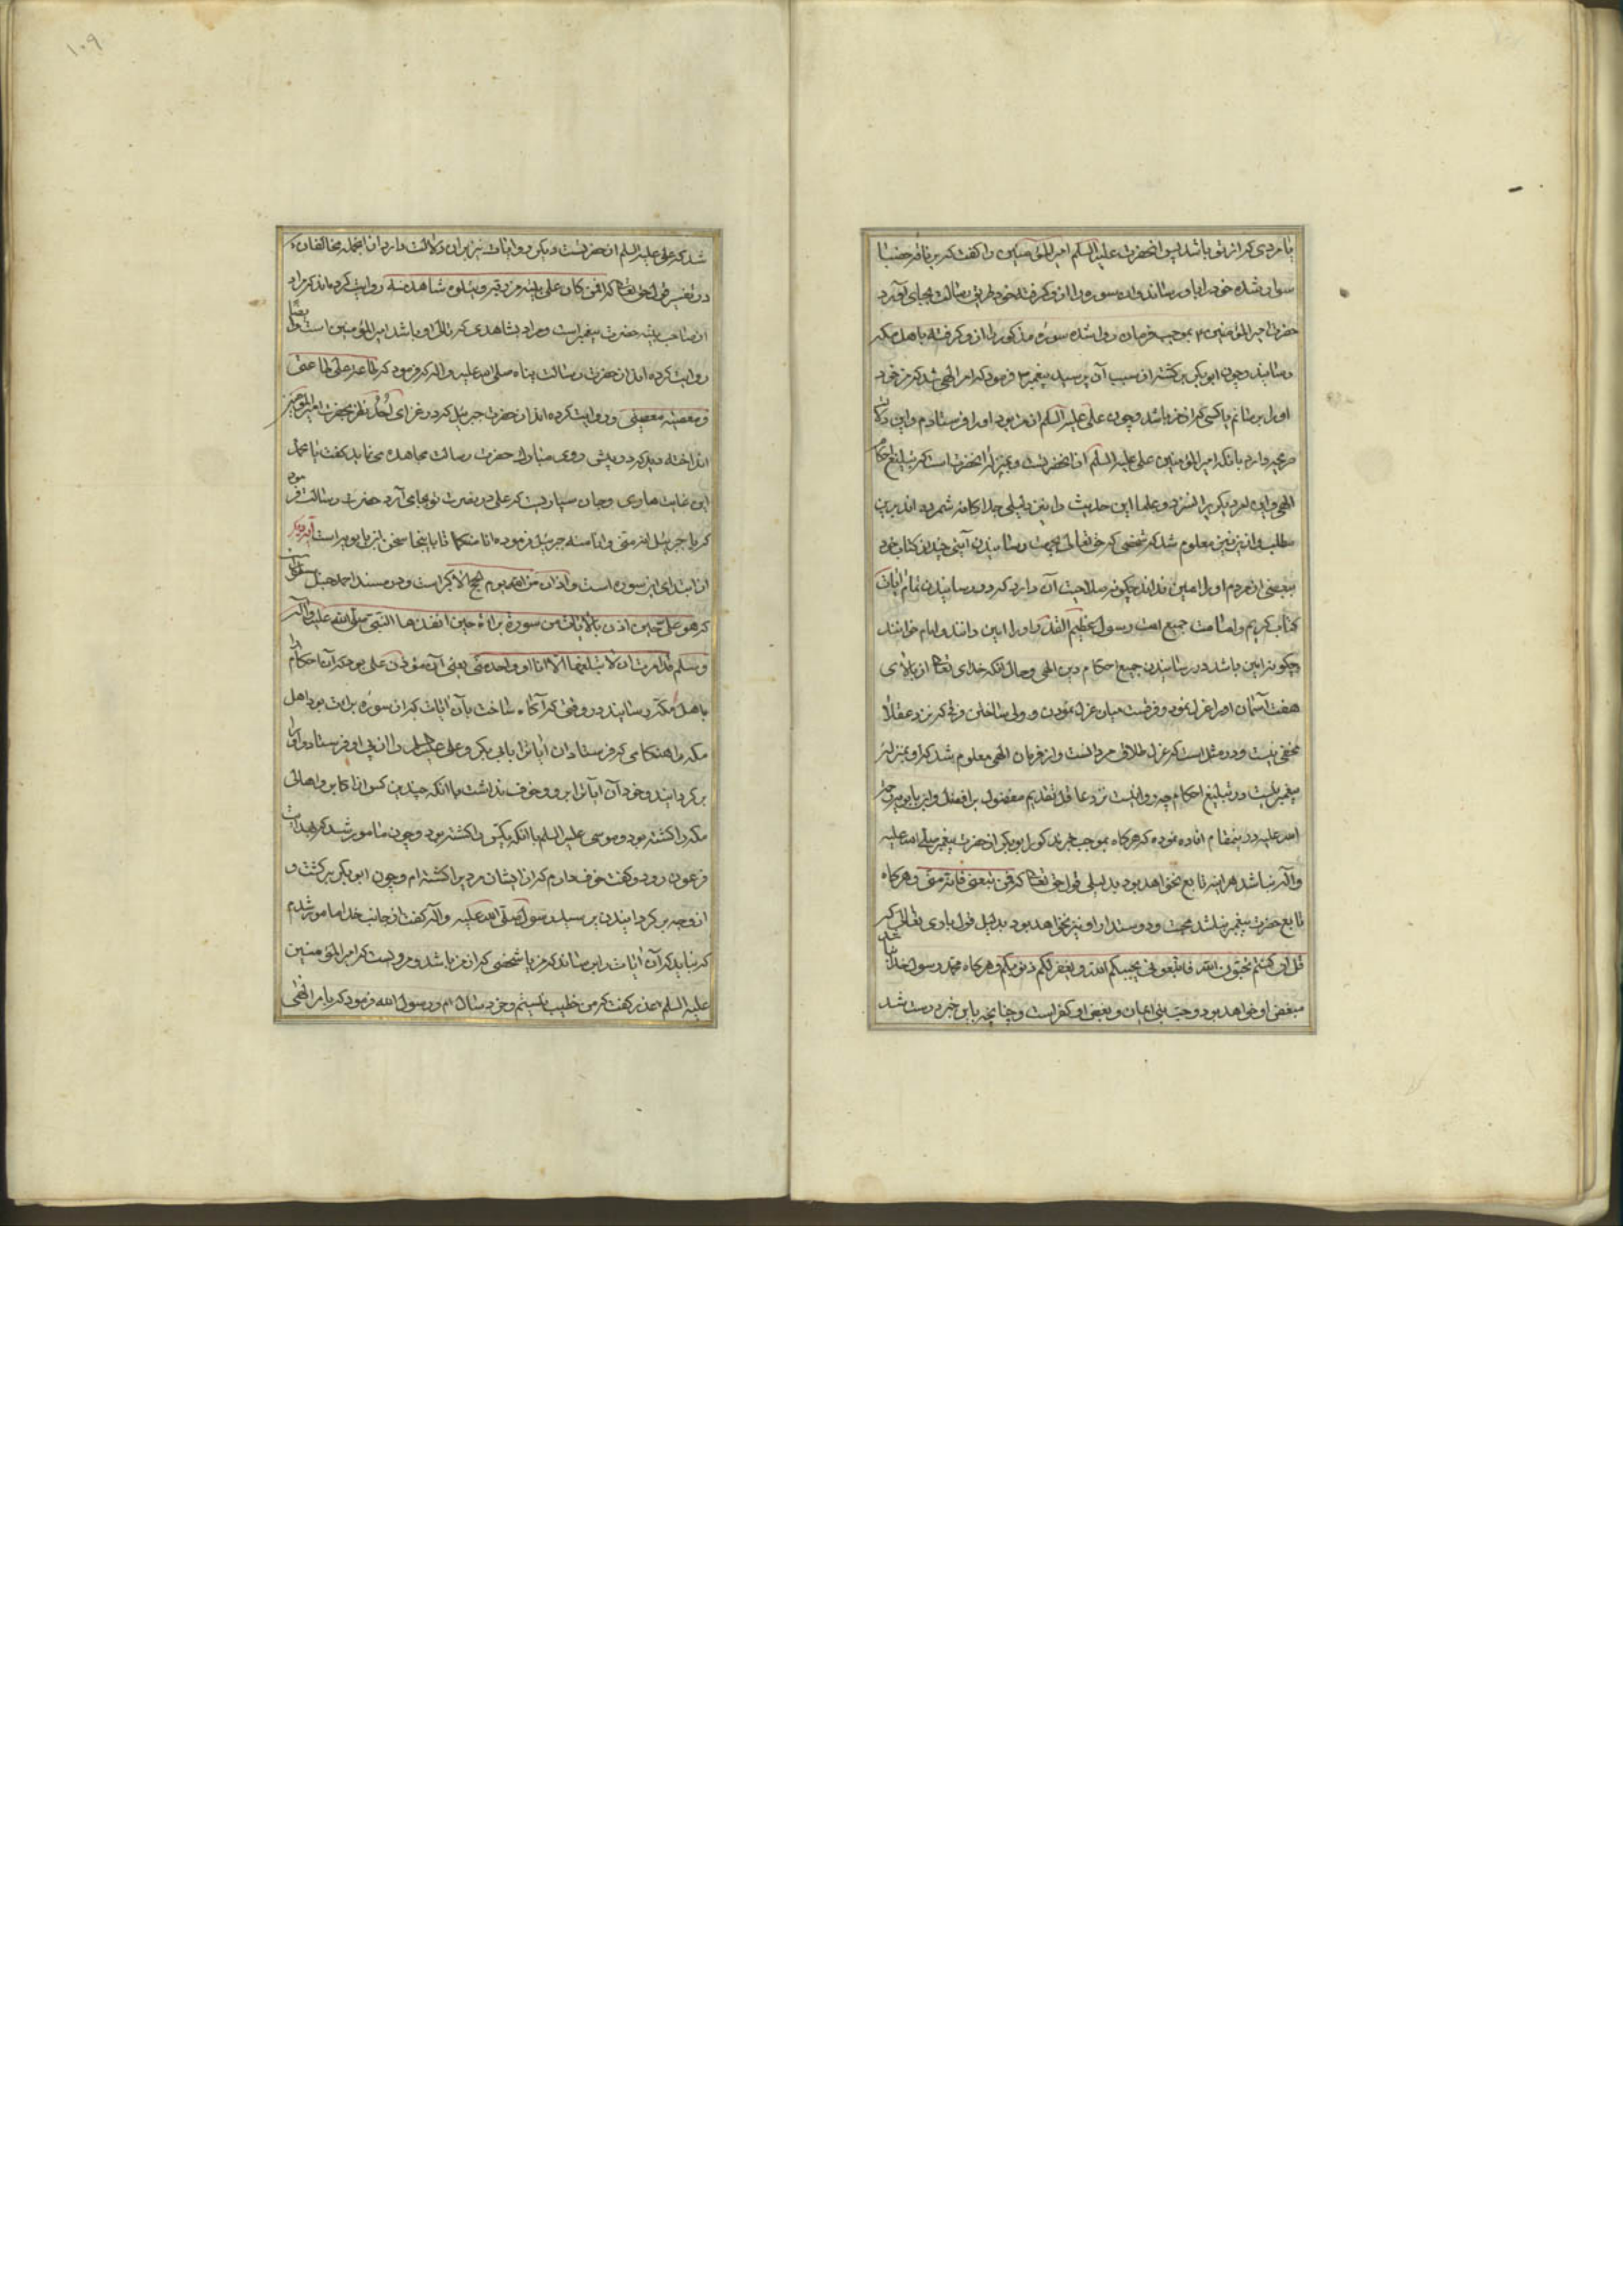 یا مردی که از تو باشد پس انحضرت علیه السلم امیر المؤمنین را کفت که بر ناقه عضبا
سوار شده خود را باو رساند و ده سوره را از و کرفته خود طریق رسالت بجای آورد
حضرت امیر المؤمنین بموجب فرمان روان شده سوره مذکور را از و کرفته باهل مکه
رسانید و چون ابو بکر برکشته از سبب آن پرسید پیغمبر فرمود که امر الهی شد که من خود
اورا برسانم یا کسی که از من باشد و چون علی علیه السلم از من بود اورا فرستادم و این دلالت
صریحه دارد بانکه امیر المؤمنین علی علیه السلم از انحضرت و بمنزله انحضرت است که تبلیغ احکام
الهی و این امر دیکریرا نسزد و علما این حدیث را نیز دلیلی جداکانه شمرده اند برین
مطلب و ازین نیز معلوم شد که شخصی که حق تعالی بجهت رسانیدن آیتی چند از کتاب خود
ببعضی از مردم اورا امین نداند چکونه صلاحیت آن دارد که در رسانیدن تمام آیات
کتاب کریم و امامت جمیع امت رسول عظیم القدر اورا امین دانند و امام خوانند
و چکونه امین باشد در رسانیدن جمیع احکام دین الهی و حال انکه خدای تعالی از بالای
هفت آسمان اورا عزل نمود و فرقست میان عزل نمودن و ولی ساختن و فرقی که نزد عقلا
مخفی نیست و در مثل است که عزل طلاق مردانست و از فرمان الهی معلوم شد که او بمنزله
پیغمبر نیست در تبلیغ احکام چه روا نیست نزد عاقل تقدیم مفضول بر افضل و ابن بابویه رحمة
الله علیه در ینمقام افاده نموده که هرکاه بموجب خبر مذکور ابو بکر از حضرت پیغمبر صلی الله علیه
و آله نباشد هر اینه تابع نخواهد بود بدلیل قول حق تعالی که فمن تبعنی فانه منی و هرکاه
تابع حضرت پیغمبر نباشد محب و دوستدار او نیز نخواهد بود بدلیل قول باری تعالی که
قل ان کنتم تحبون الله فاتبعونی یحببکم الله و یغفر لکم ذنوبکم و هرکاه محب رسول خدا نباشد
مبغض او خواهد بود و حب نبی ایمان و بغض او کفر است و چنانچه باین خبر درست شد
۱۰۹
شد که علی علیه السلم از حضرتست دیکر روایات نیز بران دلالت دارد از انجمله مخالفان
در تفسیر قول حق تعالی که افمن کان علی بینه من ربه و یتلوه شاهد منه روایت کرده اند که مراد
از صاحب بینه حضرت پیغمبر است و مراد بشاهدی که تالی او باشد امیر المؤمنین است و ایضا
روایت کرده اند از حضرت رسالت پناه صلی الله علیه و اله که فرمود که طاعة علی کطاعتی
و معصیته معصیتی و روایت کرده اند از حضرت جبرئیل که در غزای احد نظر بحضرت امیر المؤمنین
انداخته دید که در پیش روی مبارک حضرت رسالت مجاهده می نماید کفت یا محمد
این غایت هاوی و جان سپاریست که علی در نصرت تو بجا می آرد حضرت رسالت فرموده
که یا جبرئیل انه منی و انا منه جبرئیل فرموده انا منکما تا باینجا سخن ابن بابویه است آیه دیکر
از ابتدای این سوره است و اذان من الله یوم الحج الاکبر است و در مسند احمد حنبل مسطور است
که هو علی حین اذن بالایات من سورة براءة حین انفذها النبی صلی الله علیه و آله
و سلم قد امرت ان لا یبلغها الا انا او واحد منی یعنی آن مؤذن علی بود که آن احکام را
باهل مکه رسانید در وقتی که آکاه ساخت بآن آیات که از سوره برات بود اهل
مکه را هنکامی که فرستاد آن آیاترا بابی بکر و علی علیه السلم را از پی او فرستاد و او را
برکردانید و خود آن آیاترا برد و خوف نداشت با انکه چندین کس از اکابر و اهالی
مکه را کشته بود و موسی علیه السلم با انکه یکتن را کشته بود و چون مامور شد که بهدایت
فرعون رود کفت خوف دارم که از ایشان مردیرا کشته ام و چون ابو بکر برکشت و
از وجه برکردانیدن پرسید رسول صلی الله علیه و آله کفت از جانب خدا مامور شدم
که نباید که آن آیات را برساند مکر من یا شخصی که از من باشد و مرویست که امیر المؤمنین
علیه السلم عذر کفت که من خطیب نیستم و خرد سال ام و رسول الله فرمود که یا من الهی